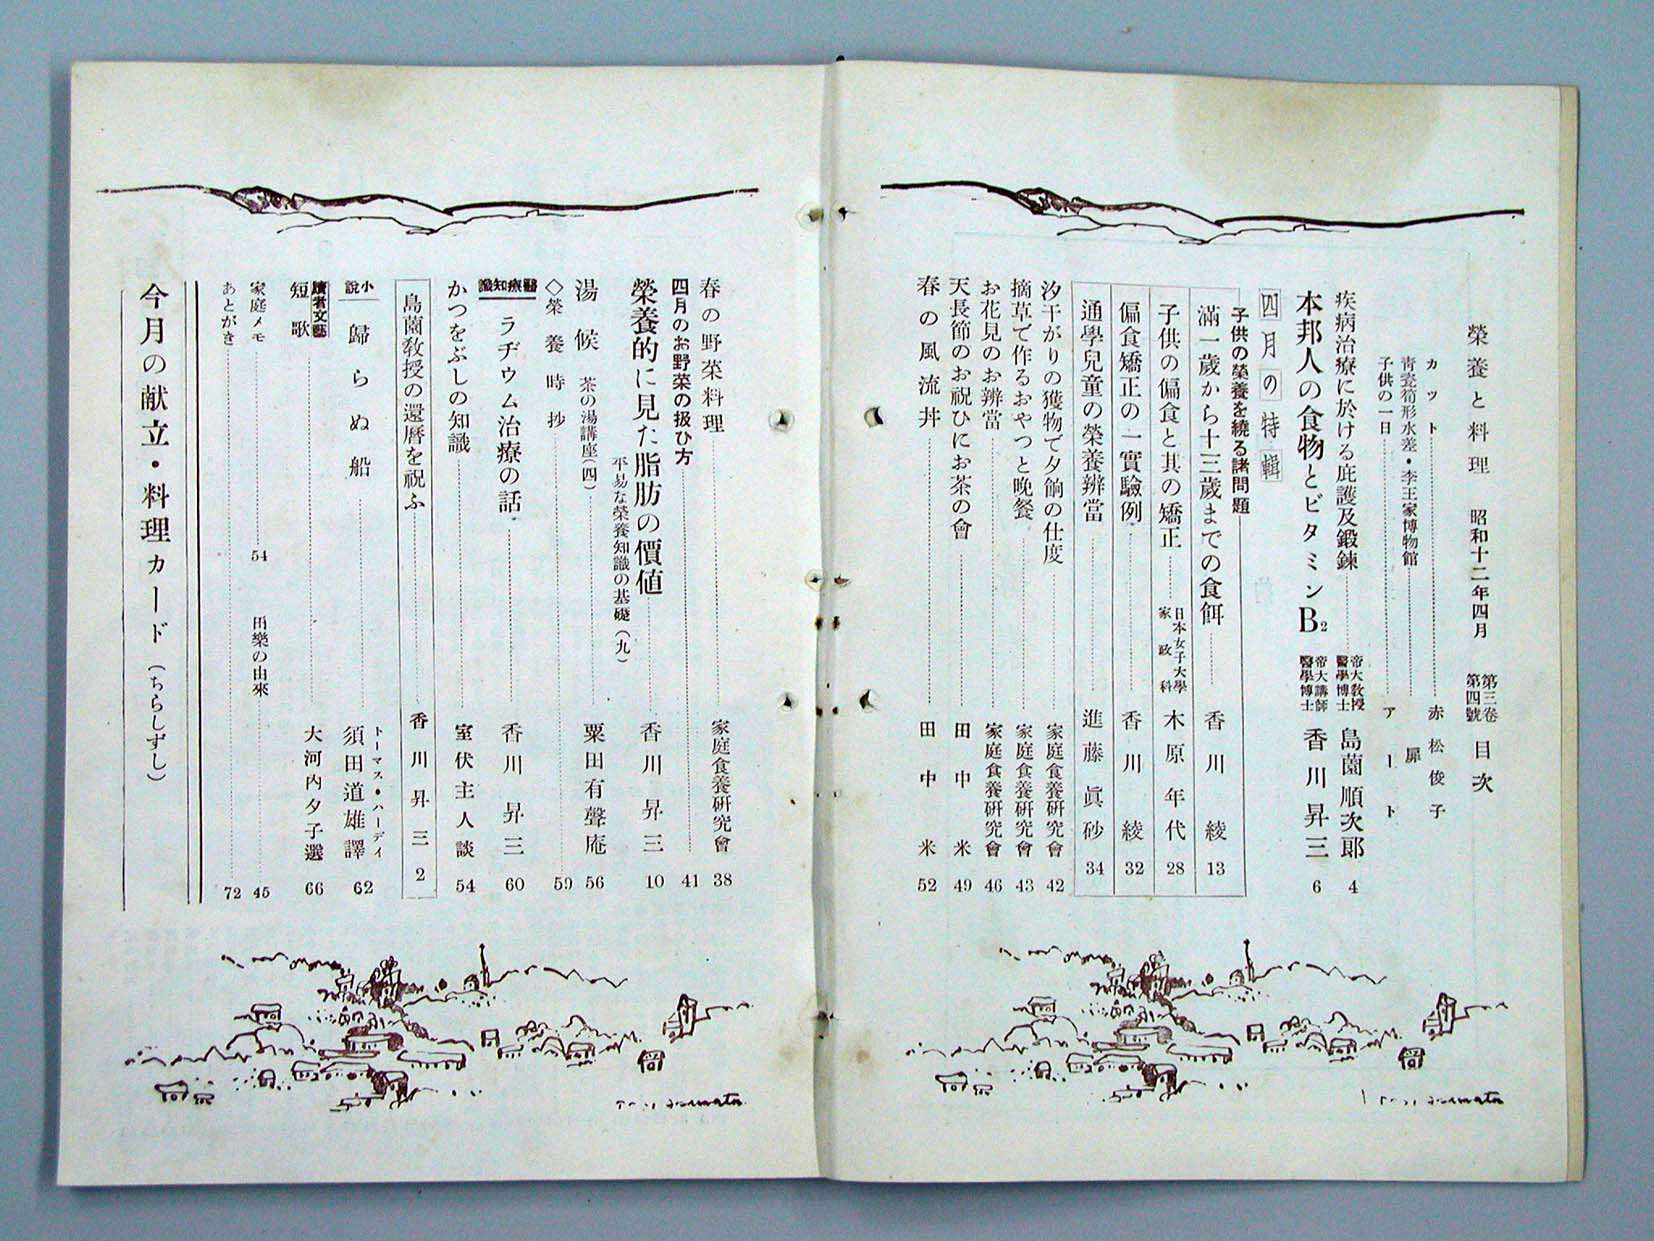 榮養と料理 昭和十二年四月 第三卷第四號 目次
カット 赤松俊子
靑瓷筍形水差・李王家博物館 扉
子供の一日 アート
疾病治療に於ける庇護及鍛鍊 帝大敎授醫學博士 島薗順次郎 4
本邦人の食物とビタミンB₂ 帝大講師醫學博士 香川昇三 6
四月の特輯
子供の榮養を繞る諸問題
滿一歲から十三歲までの食餌 香川綾 13
子供の偏食と其の矯正 日本女子大學家政科 木原年代 28
偏食矯正の一實驗例 香川綾 32
通學兒童の榮養辨當 進藤眞砂 34
汐干がりの獲物で夕餉の仕度 家庭食養硏究會 42
摘草で作るおやつと晚餐 家庭食養硏究會 43
お花見のお辨當 家庭食養硏究會 46
天長節のお祝ひにお茶の會 田中米 49
春の風流丼 田中米 52
春の野菜料理 家庭食養硏究會 38
四月のお野菜の扱ひ方 41
榮養的に見た脂肪の價値 香川昇三 10
平易な榮養知識の基礎(九)
湯候 茶の湯講座(四) 粟田有聲庵 56
◇榮養時抄 59
醫療知識 ラヂウム治療の話 香川昇三 60
かつをぶしの知識 室伏主人談 54
島薗敎授の還曆を祝ふ 香川昇三 2
小說 歸らぬ船 トーマス・ハーディ 須田道雄譯 62
讀者文藝 短歌 大河内夕子選 66
家庭メモ 54 田樂の由來 45
あとがき 72
今月の献立・料理カード(ちらしずし)